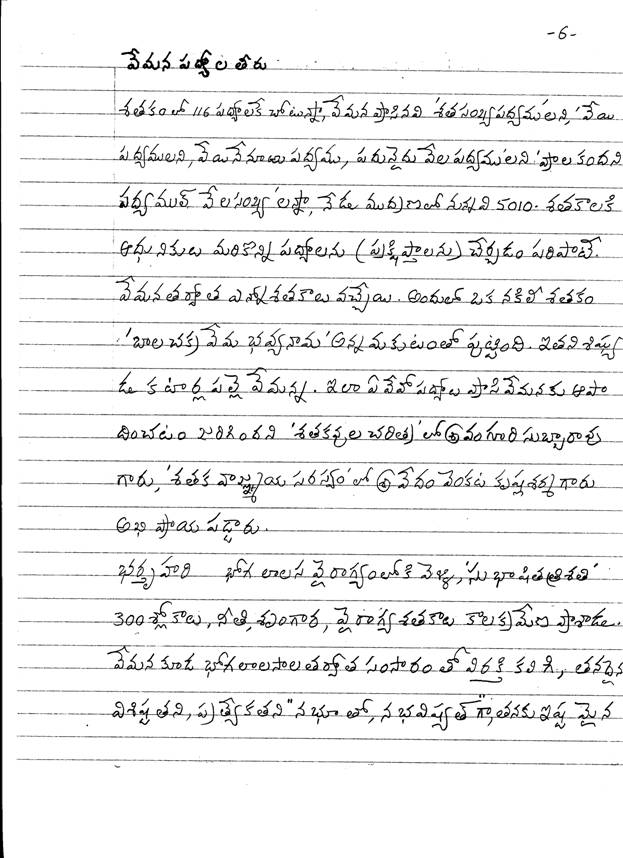 -6-
వేమన పద్యాల తీరు
శతకంలో 116 పద్యాలకే చోటున్నా, వేమన వ్రాసినవి 'శతసంఖ్యపద్యము'లని, 'వేయి
పద్యములని, వేయినేనూఱు పద్యము, పదునైదు వేల పద్యము'లని 'వ్రాల కందని
పద్యముల్ వేలసంఖ్య' లన్నా, నేడు ముద్రణలో నున్నవి 5010. శతకాలకి
ఆధునికులు మరికొన్ని పద్యాలను (ప్రక్షిప్తాలను) చేర్చడం పరిపాటే.
వేమన తర్వాత ఎన్నోశతకాలు వచ్చేయి. అందులో ఒక నకిలీ శతకం
'బాలచక్ర వేమ భవ్యనామ' అన్న మకుటంతో పుట్టింది. ఇతని శిష్యు
డు కటార్లపల్లె వేమన్న. ఇలా ఏవేవో పద్యాలు వ్రాసి వేమనకు ఆపా
దించటం జరిగిందని 'శతకకవుల చరిత్ర'లో శ్రీ వంగూరి సుబ్బారావు
గారు, 'శతక వాఙ్మయ సర్వస్వం'లో శ్రీ వేదం వెంకట కృష్ణశర్మ గారు
అభిప్రాయ పడ్డారు.
భర్తృహరి భోగ లాలస వైరాగ్యంలోకి వెళ్ళి, 'సుభాషితత్రిశతి'
300 శ్లోకాలు, నీతి, శృంగార, వైరాగ్య శతకాలు కాలక్రమేణ వ్రాశాడు.
వేమన కూడ భోగలాలసాల తర్వాత సంసారంతో విరక్తి కలిగి, తనదైన
విశిష్టతని, ప్రత్యేకతని "నభూతో, న భవిష్యత్"గా, తనకు ఇష్టమైన